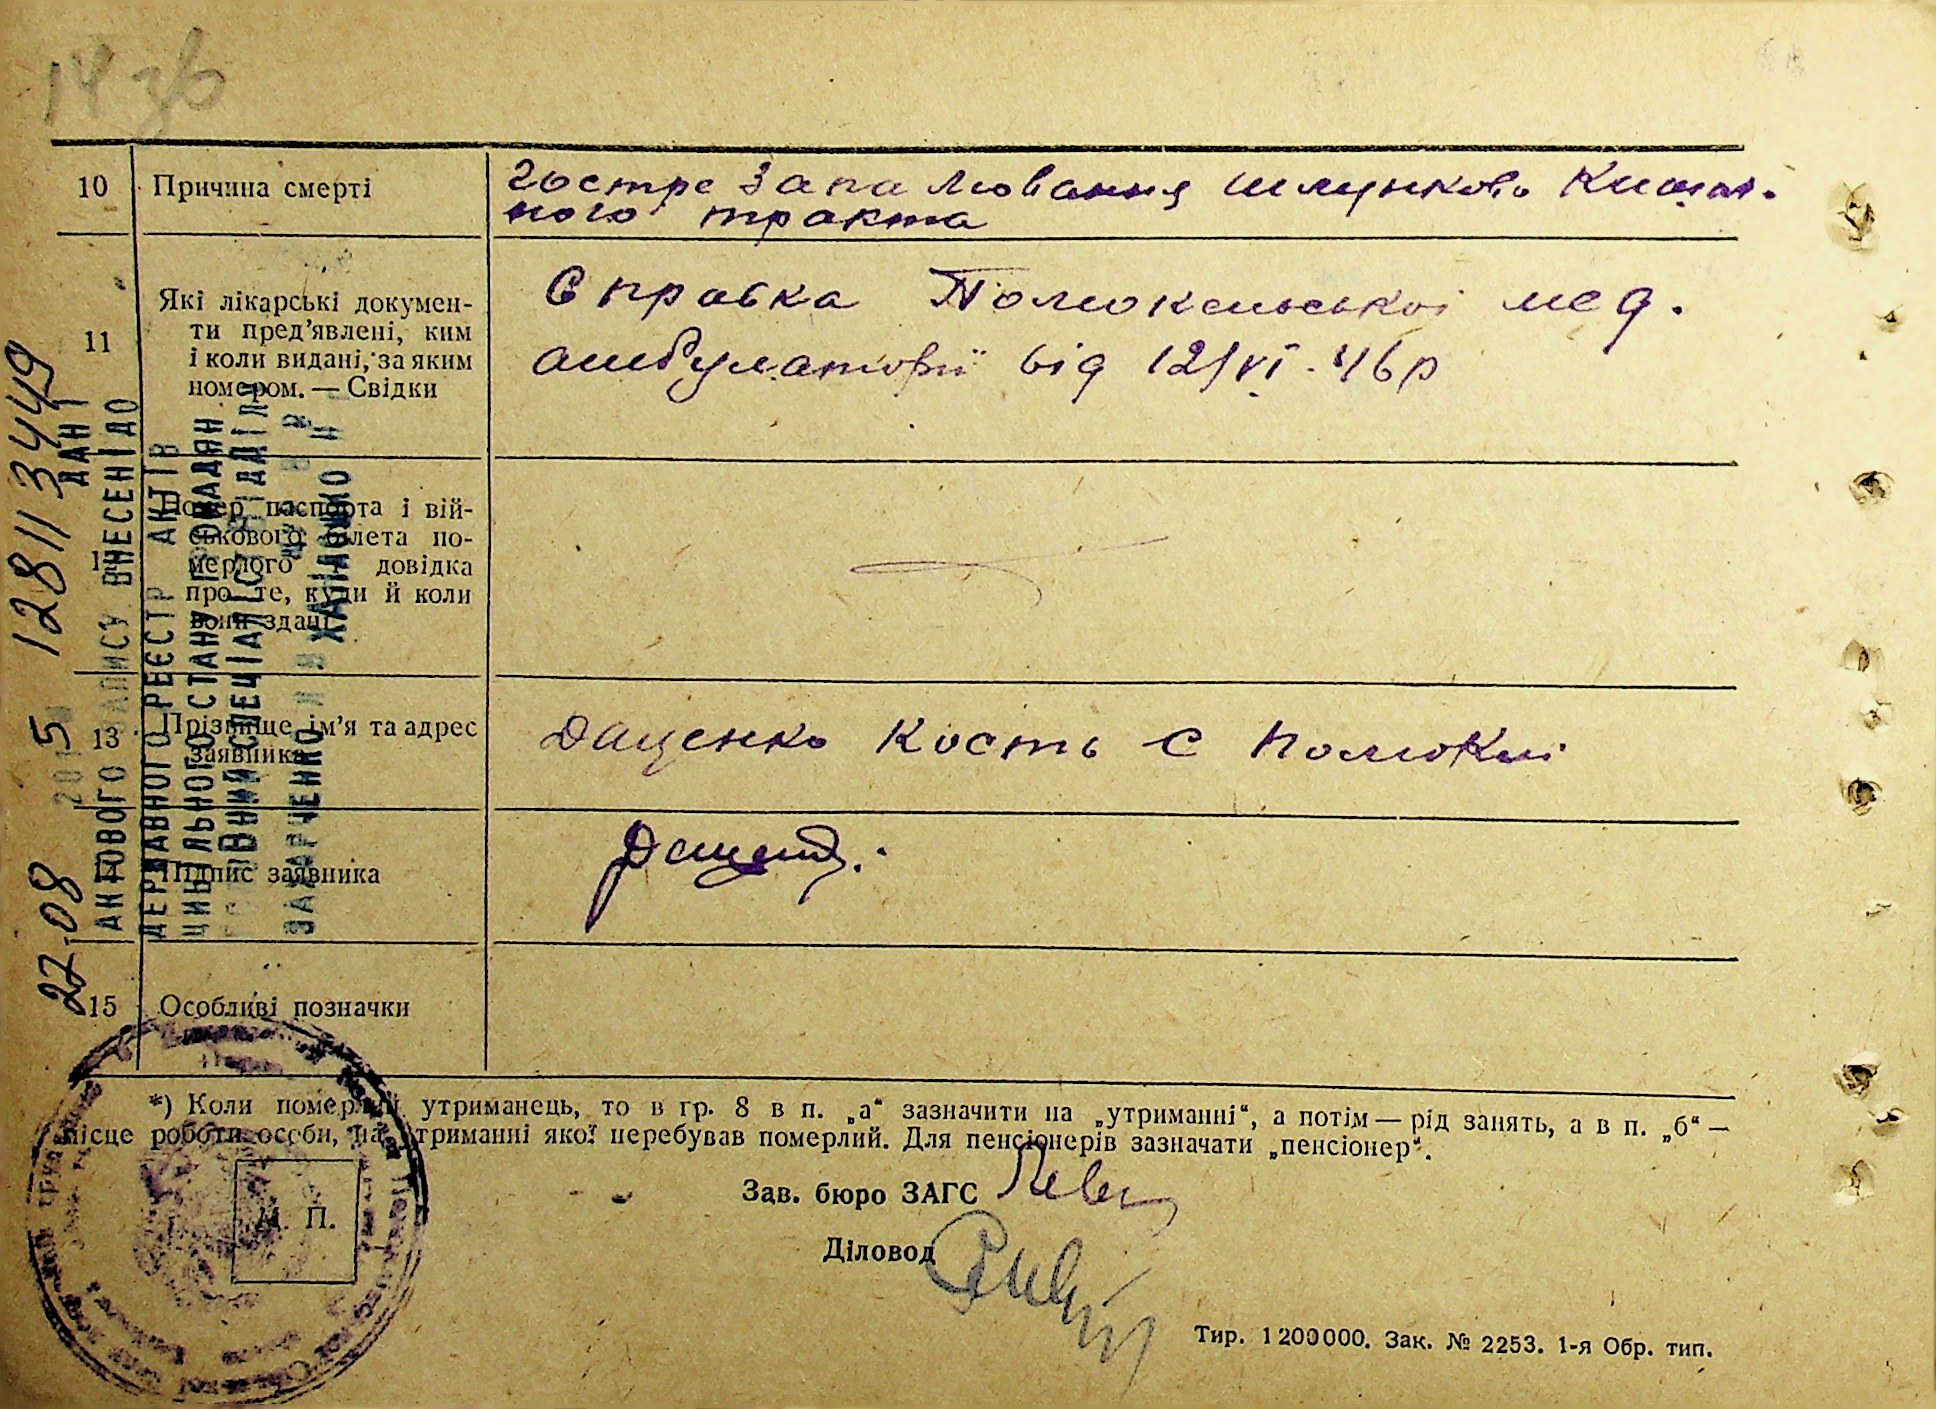 14 зв
10 Причина смерті
гостре запалювання шлунково кишеч-
ного тракта
11 Які лікарські докумен-
ти пред'явлені, ким
і коли видані, за яким
номером. — Свідки
Справка Помоклської мед.
амбулаторії від 12/VI-46р
Номер паспорта і вій-
ськового білета по-
мерлого і довідка
про те, куди й коли
вони здані
13 Прізвище, ім'я та адрес
заявника
Даценко Кость с Помоклі
14 Підпис заявника
15 Особливі позначки
22.08 2015 12811 3449
ДАНІ
АКТОВОГО ЗАПИСУ ВНЕСЕНІ ДО
ДЕРЖАВНОГО РЕЄСТР АКТІВ
ЦИВІЛЬНОГО СТАНУ ГРОМАДЯН
СПЕЦІАЛІСТ ВІДДІЛУ
*) Коли померлий утриманець, то в гр. 8 в п. „а“ зазначити на „утриманні“, а потім — рід занять, а в п. „б“ —
місце роботи особи, на утриманні якої перебував померлий. Для пенсіонерів зазначати „пенсіонер“.
М. П.
Зав. бюро ЗАГС
Діловод
Тир. 1200000. Зак. № 2253. 1-я Обр. тип.